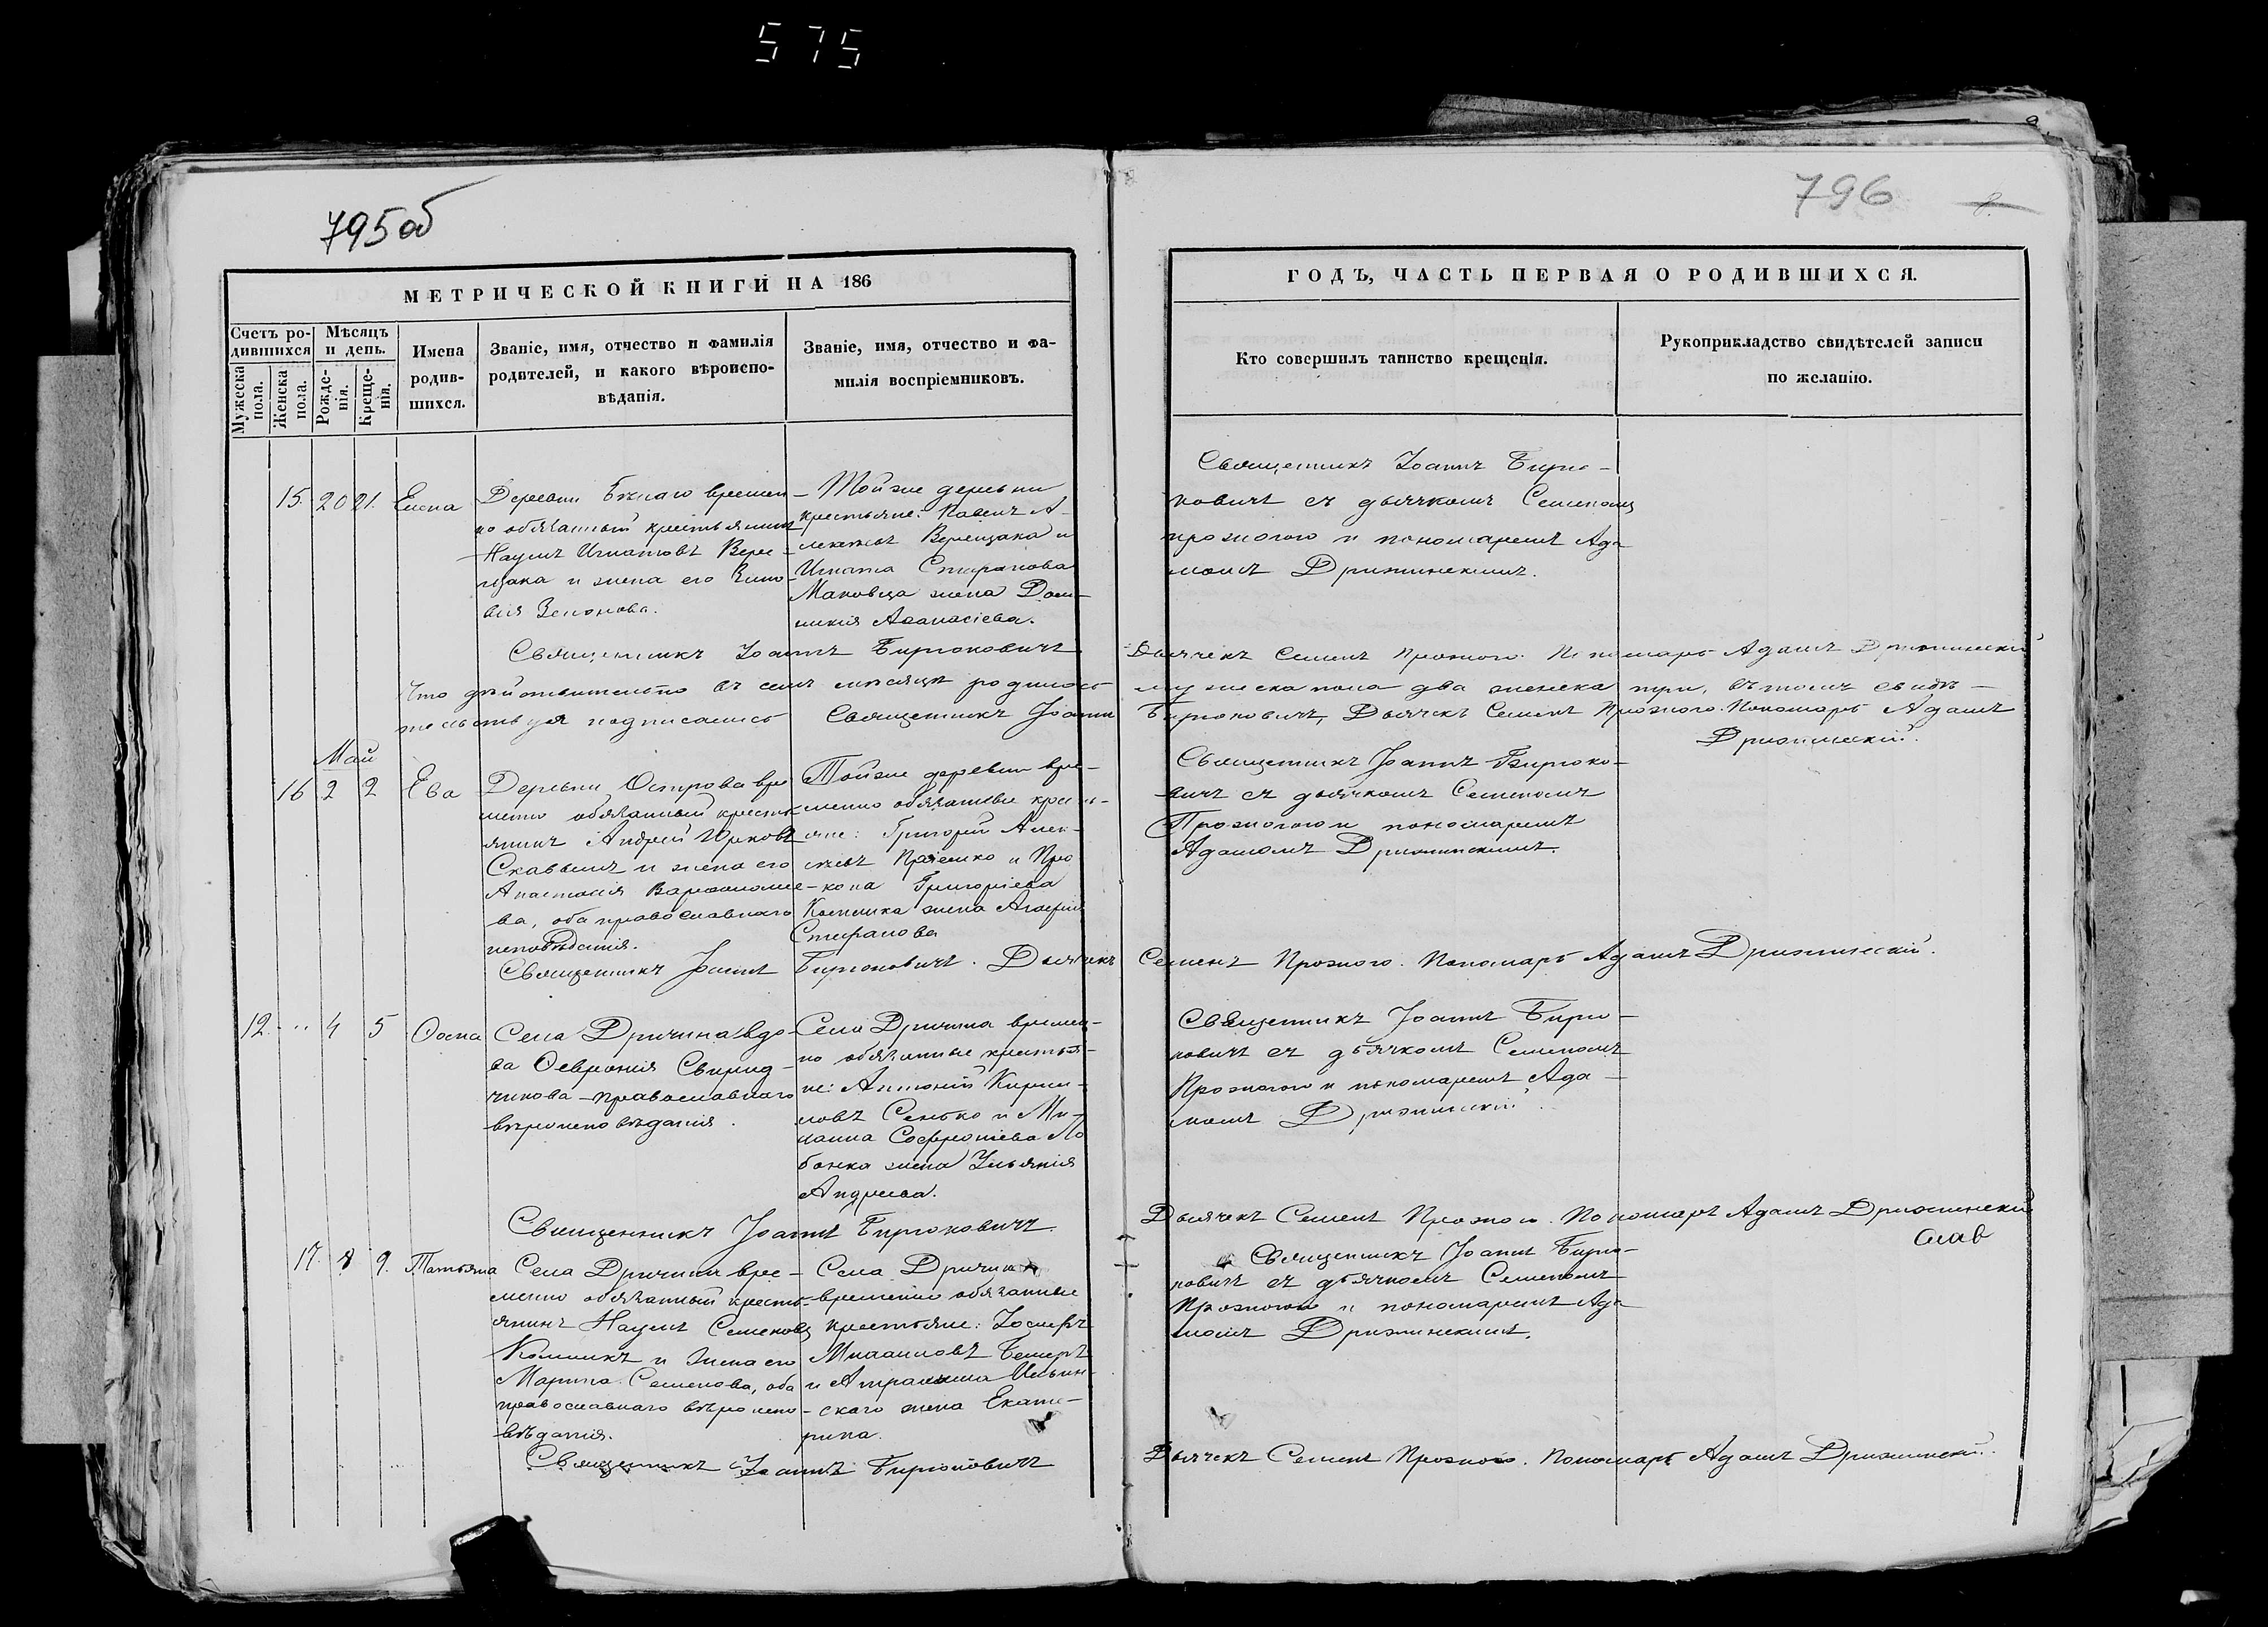 575
795об
796
МЕТРИЧЕСКОЙ КНИГИ НА 186
ГОДЪ, ЧАСТЬ ПЕРВАЯ О РОДИВШИХСЯ.
Счетъ ро-
дившихся
Мужеска
пола.
Женска
пола.
Мѣсяцъ
и день.
Рожде-
нія.
Креще-
нія.
Имена
родив-
шихся.
Званіе, имя, отчество и фамилія
родителей, и какого вѣроиспо-
вѣданія.
Званіе, имя, отчество и фа-
милія воспріемниковъ.
Кто совершилъ таинство крещенія.
Рукоприкладство свидѣтелей записи
по желанію.
15. 20 21. Елена
Деревни времен
но обязанный крестьянинъ
Наумъ Игнатовъ Вере-
щака и жена его Зино
вія Зенонова.
Тойже деревни
крестьяне: Павелъ А-
лексѣевъ Верещака и
Игната Стефанова
Маковца жена Дом-
никія Аѳанасіева.
Священникъ Іоаннъ Бирю-
ковичъ съ дьячкомъ Семеномъ
Прожогою и пономаремъ Ада
момъ
Священникъ Іоаннъ Бирюковичъ
Дьячекъ Семенъ Прожого. Пономарь Адамъ
Что дѣйствительно въ семъ мѣсяцѣ родилось
мужеска пола два женска три, въ томъ свидѣ-
тельствуя подписались Священникъ Іоаннъ
Бирюковичъ, Дьячекъ Семенъ Прожого. Пономарь Адамъ
Май
16 2 2 Ева
Деревни Острова вре
менно обязанный кресть
янинъ Андрей Юрковъ
и жена его
Анастасія Варѳоломее
ва, оба православнаго
исповѣданія.
Тойже деревни вре-
менно обязанные кресть-
яне: Григорій Алек-
сѣевъ и Про
копа Григоріева
жена Агафія
Стефанова
Священникъ Іоаннъ Бирюко-
вичъ съ дьячкомъ Семеномъ
Прожогою и пономаремъ
Адамомъ
Священникъ Іоаннъ Бирюковичъ. Дьячекъ
Семенъ Прожого. Пономарь Адамъ
12. 4 5 Ѳома
Села Дричина вдо-
ва Ѳевронія Свирид-
чикова - православнаго
вѣроисповѣданія.
Села Дричина времен-
но обязанные крестья-
не: Антоній Кирил-
ловъ Сенько и Ми-
хаила Софроніева Ло
банка жена Ульянія
Андреева.
Священникъ Іоаннъ Бирю-
ковичъ съ дьячкомъ Семеномъ
Прожогою и пономаремъ Ада-
момъ
Священникъ Іоаннъ Бирюковичъ.
Дьячекъ Семенъ Прожого. Пономарь Адамъ
17. 8 9. Татьяна
Села Дричина вре-
менно обязанный кресть-
янинъ Наумъ Семеновъ
и жена его
Марина Семенова, оба
православнаго вѣроиспо-
вѣданія.
Села Дричина
временно обязанные
крестьяне: Іосифъ
Михаиловъ
и Ильин-
скаго жена Екате-
рина.
Священникъ Іоаннъ Бирю-
ковичъ съ дьячкомъ Семеномъ
Прожогою и пономаремъ Ада
момъ
Священникъ Іоаннъ Бирюковичъ
Дьячекъ Семенъ Прожого. Пономарь Адамъ